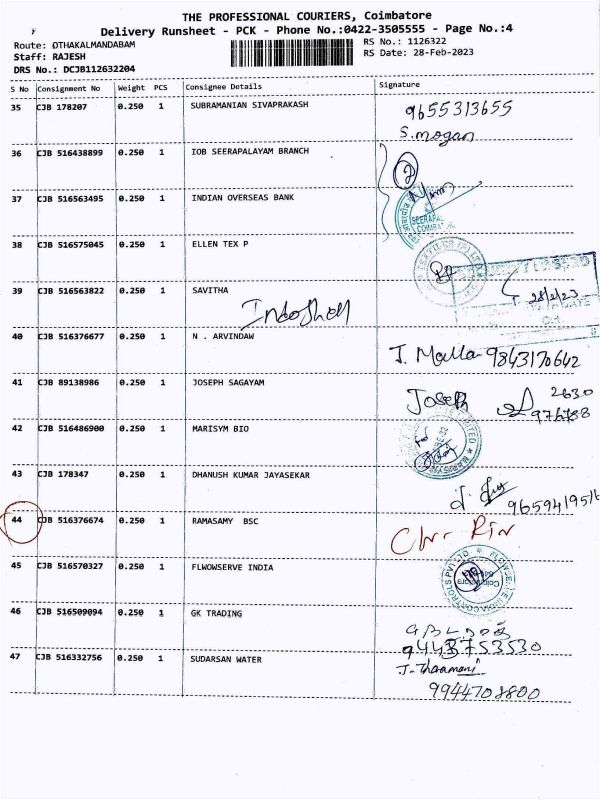 THE PROFESSIONAL COURIERS, Coimbatore
Delivery Runsheet - PCK - Phone No.:0422-3505555 - Page No.:4
Route: OTHAKALMANDABAM
RS No.: 1126322
Staff: RAJESH
RS Date: 28-Feb-2023
DRS No.: DCJB112632204
S No Consignment No Weight PCS Consignee Details Signature
35 CJB 178207 0.250 1 SUBRAMANIAN SIVAPRAKASH 9655313655
S.mogan
36 CJB 516438899 0.250 1 IOB SEERAPALAYAM BRANCH 2
37 CJB 516563495 0.250 1 INDIAN OVERSEAS BANK
38 CJB 516575045 0.250 1 ELLEN TEX P
39 CJB 516563822 0.250 1 SAVITHA 28/2/23
IndoShell
40 CJB 516376677 0.250 1 N . ARVINDAW J. Malla 9843170642
41 CJB 89138986 0.250 1 JOSEPH SAGAYAM Joseph 2630
42 CJB 516486900 0.250 1 MARISYM BIO
43 CJB 178347 0.250 1 DHANUSH KUMAR JAYASEKAR
9659419516
44 CJB 516376674 0.250 1 RAMASAMY BSC
45 CJB 516570327 0.250 1 FLWOWSERVE INDIA
46 CJB 516509094 0.250 1 GK TRADING
47 CJB 516332756 0.250 1 SUDARSAN WATER
9944708800